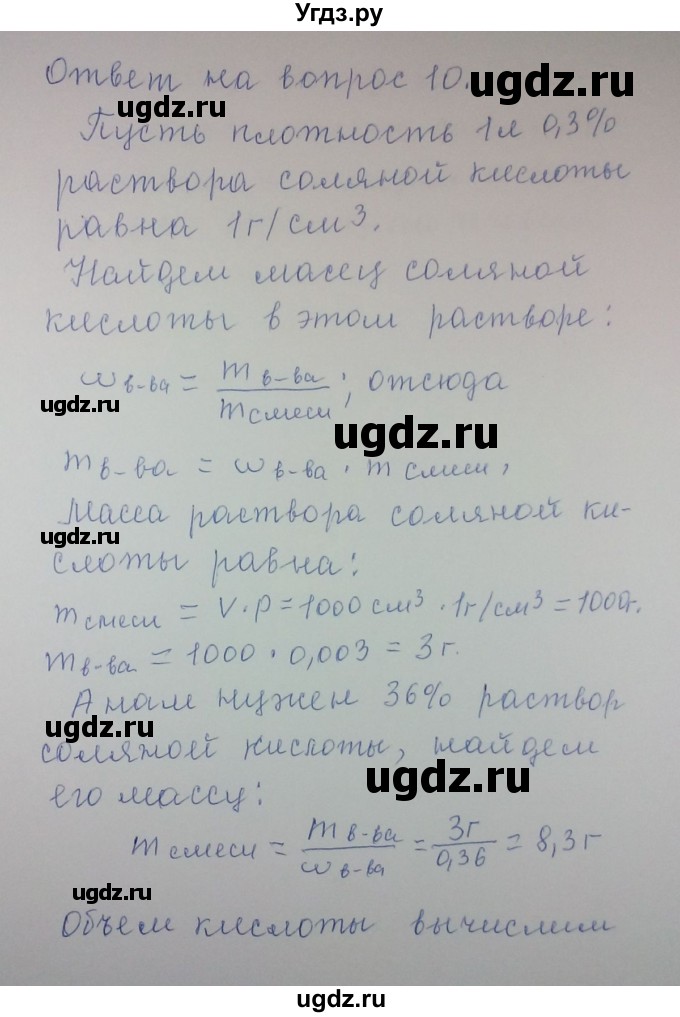 Угдз.ру
Ответ на вопрос 10.
ugdz.ru
ugdz.ru
Пусть плотность 1л 0,3%
раствора соляной кислоты
равна 1г/см³.
Найдем массу соляной
кислоты в этом растворе:
ω в-ва = m в-ва / m смеси ; отсюда
ugdz.ru
ugdz.ru
m в-ва = ω в-ва · m смеси,
Масса раствора соляной ки-
ugdz.ru
слоты равна:
m смеси = V·ρ = 1000 см³ · 1г/см³ = 1000г.
m в-ва = 1000 · 0,003 = 3г.
А нам нужен 36% раствор
ugdz.ru
соляной кислоты, найдем
ugdz.ru
его массу:
m смеси = m в-ва / ω в-ва = 3г / 0,36 = 8,3 г
ugdz.ru
Объем кислоты вычислим
ugdz.ru